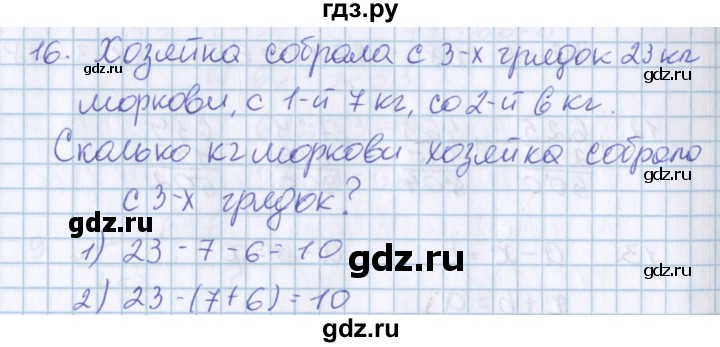 гдз.ру
16. Хозяйка собрала с 3-х грядок 23 кг
gdz.ru gdz.ru
моркови, с 1-й 7 кг, со 2-й 6 кг.
Сколько кг моркови хозяйка собрала
gdz.ru gdz.ru
с 3-х грядок?
gdz.ru
1) 23 - 7 - 6 = 10
gdz.ru
2) 23 - (7 + 6) = 10
gdz.ru gdz.ru
gdz.ru